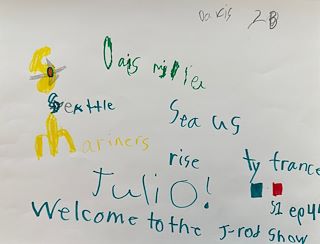 2B
Seattle
Mariners
Sea us
rise
ty france
JuliO!
S1 ep4
Welcome to the J-rod show